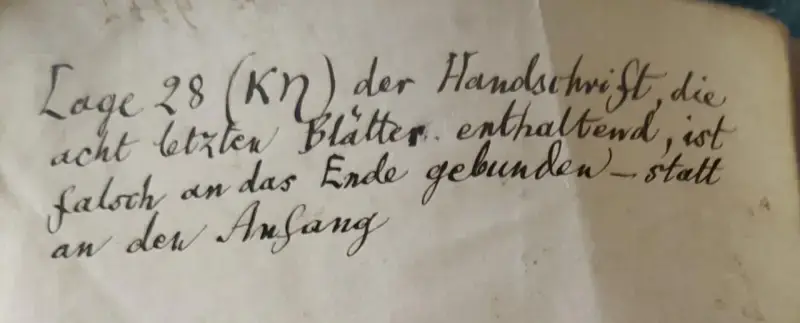 Lage 28 (κη) der Handschrift, die
acht letzten Blätter enthaltend, ist
falsch an das Ende gebunden – statt
an den Anfang